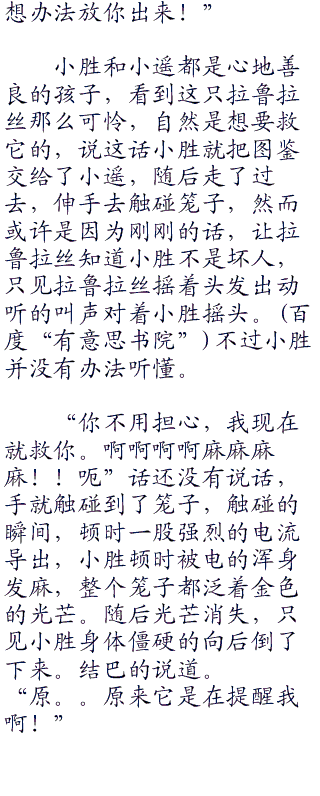 想办法放你出来！”
小胜和小遥都是心地善
良的孩子，看到这只拉鲁拉
丝那么可怜，自然是想要救
它的，说这话小胜就把图鉴
交给了小遥，随后走了过
去，伸手去触碰笼子，然而
或许是因为刚刚的话，让拉
鲁拉丝知道小胜不是坏人，
只见拉鲁拉丝摇着头发出动
听的叫声对着小胜摇头。(百
度“有意思书院”)不过小胜
并没有办法听懂。
“你不用担心，我现在
就救你。啊啊啊啊麻麻麻
麻！！呃”话还没有说话，
手就触碰到了笼子，触碰的
瞬间，顿时一股强烈的电流
导出，小胜顿时被电的浑身
发麻，整个笼子都泛着金色
的光芒。随后光芒消失，只
见小胜身体僵硬的向后倒了
下来。结巴的说道。
“原。。原来它是在提醒我
啊！”